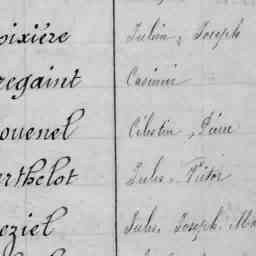 oixiére Julien, Joseph
regaint Casimir
ouenel Célestin, Pierre
erthelot Jules, Victor
eziel Jules, Joseph, Ma